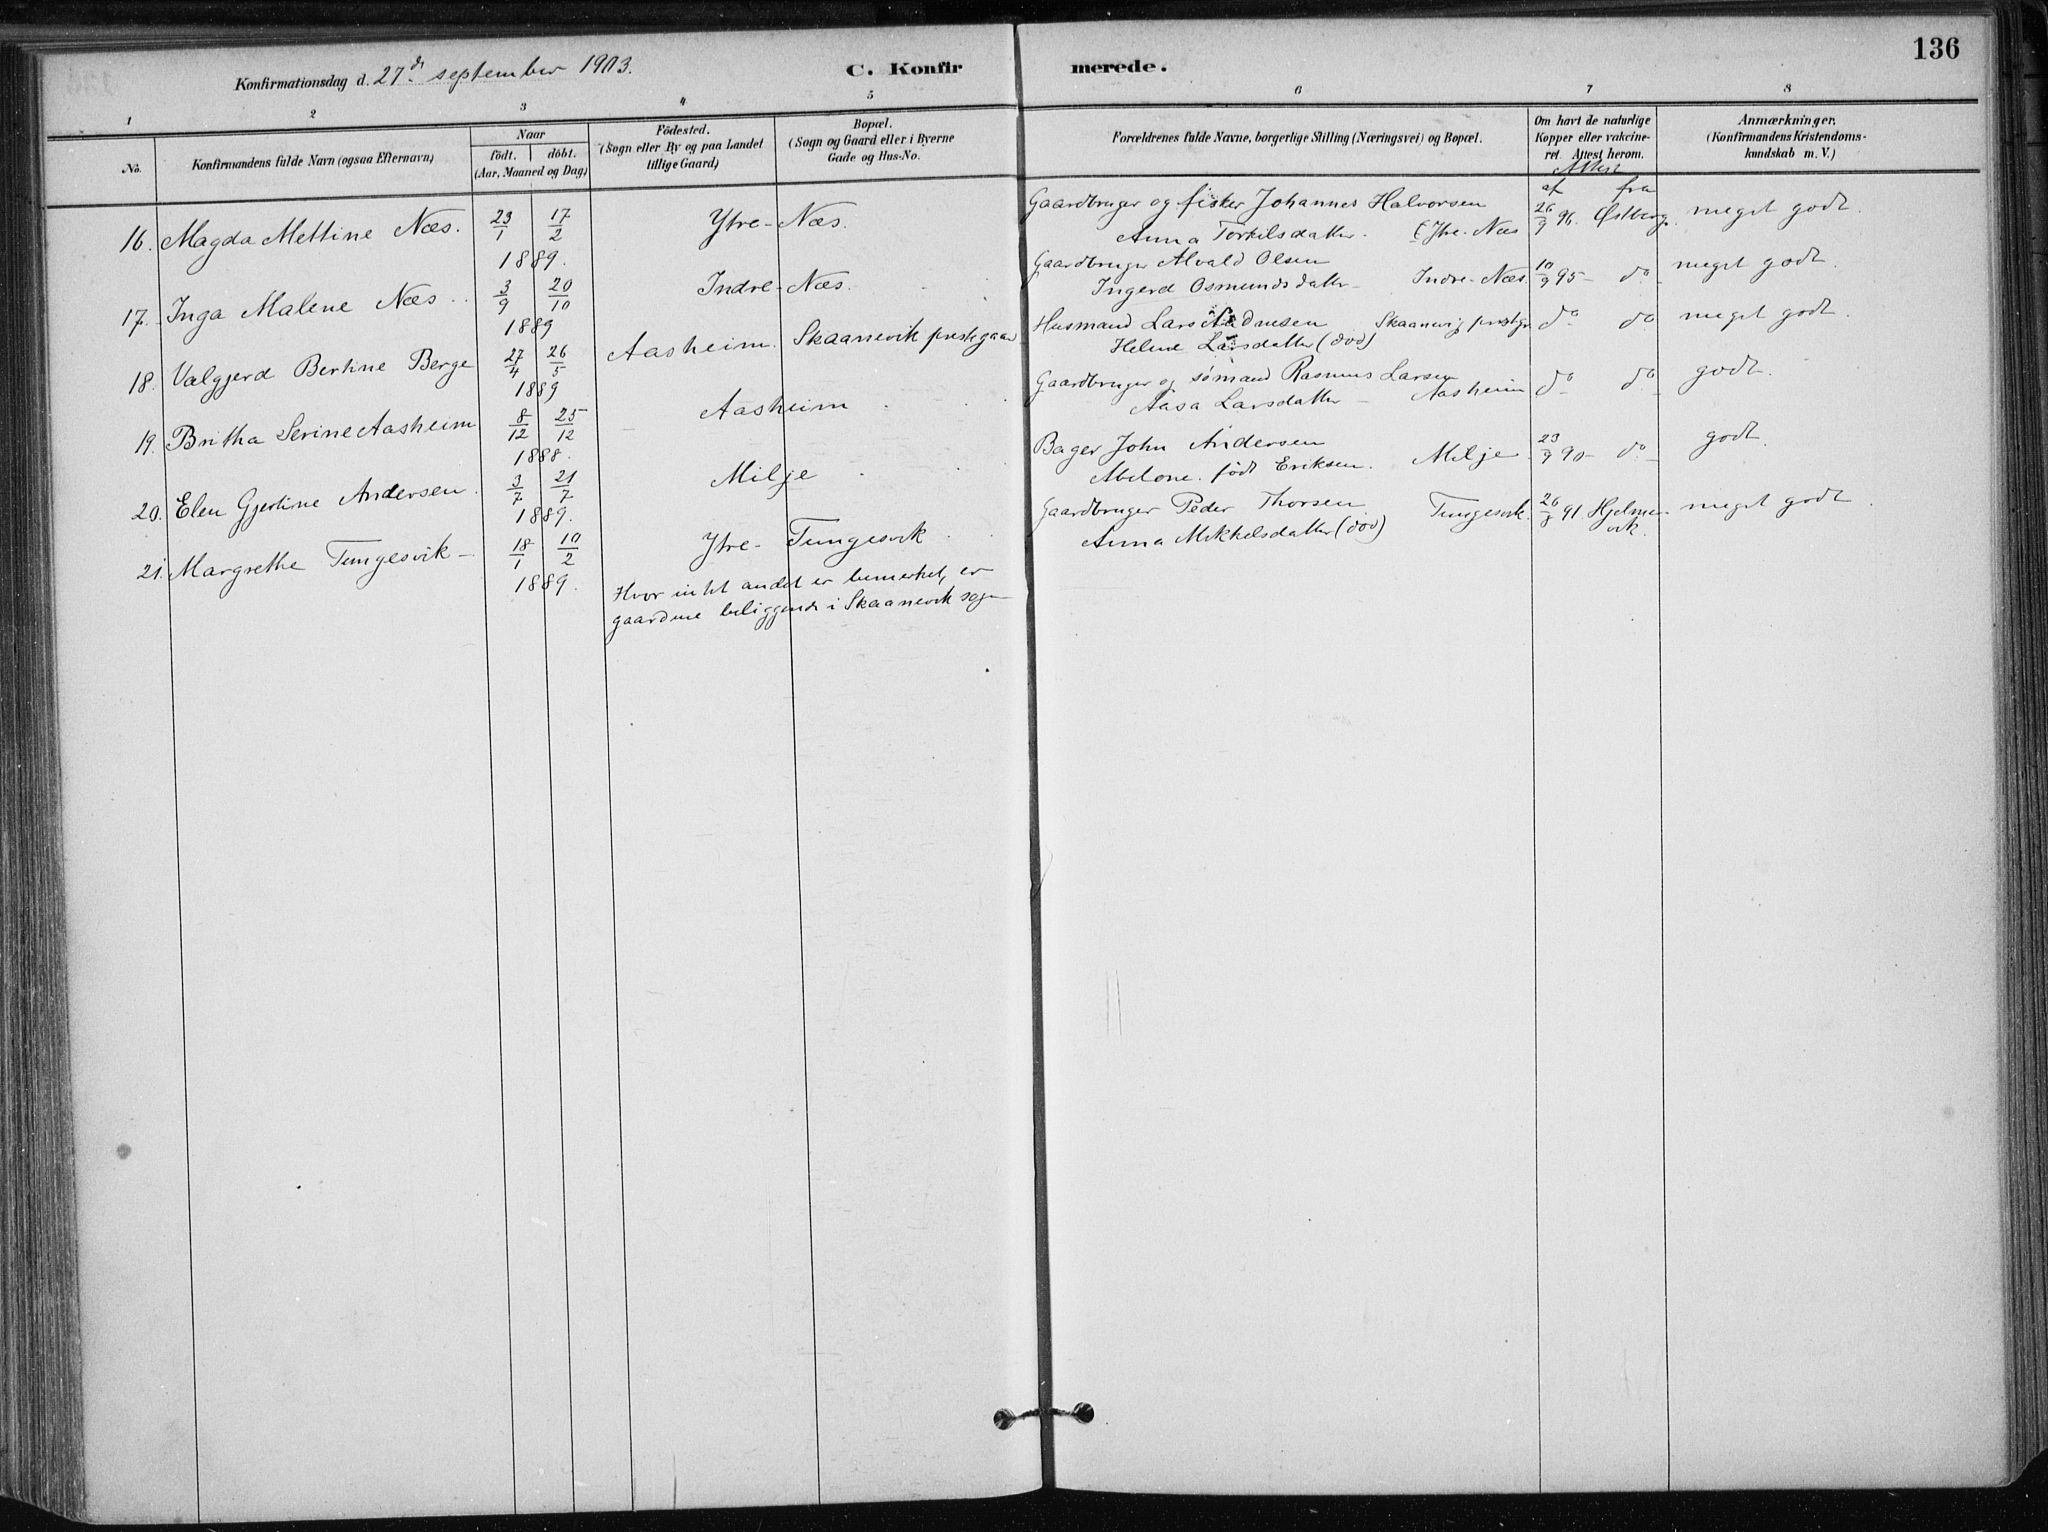 136
Konfirmationsdag d. 27de september 1903.
C. Konfirmerede.
1 2 3 4 5 6 7 8
No.
Konfirmandens fulde Navn (ogsaa Efternavn)
Naar
födt. döbt.
(Aar, Maaned og Dag)
Födested.
(Sogn eller By og paa Landet
tillige Gaard)
Bopæl.
(Sogn og Gaard eller i Byerne
Gade og Hus-No.
Forældrenes fulde Navne, borgerlige Stilling (Næringsvei) og Bopæl.
Om havt de naturlige
Kopper eller vakcine-
ret. Attest herom.
Anmærkninger.
(Konfirmandens Kristendoms-
kundskab m. V.)
Attest
af fra
16. Magda Mettine Næs. 23/1 17/2 1889. Ytre-Næs. Gaardbruger og fisker Johannes Halvorsen
Anna Torkilsdatter. Ytre-Næs 26/9 96. Østberg. meget godt.
17. Inga Malene Næs. 3/9 20/10 1889 Indre-Næs. Gaardbruger Alvald Olsen
Ingerd Osmundsdatter Indre-Næs. 10/9 95- do meget godt.
18. Valgjerd Bertine Berge 27/4 26/5 1889 Aasheim. Skaanevik prestegaar Husmand Lars
Helene Larsdatter (død) Skaanevig prestgr do do meget godt.
19. Britha Serine Aasheim 8/12 25/12 1888. Aasheim Gaardbruger og sømand Rasmus Larsen
Aasa Larsdatter - Aasheim do do godt.
20. Elen Gjertine Andersen. 3/7 21/7 1889. Milje Bager John Andersen
Abelone født Eriksen. Milje. 23/9 90- do godt.
21. Margrethe Tungesvik - 18/1 10/2 1889. Ytre-Tungesvik Gaardbruger Peder Thorsen
Anna Mikkelsdatter (død) Tungesvik. 26/8 91 Hjelme-
vik. meget godt
Hvor intet andet er bemerket, er
gaardene beliggende i Skaanevik sogn